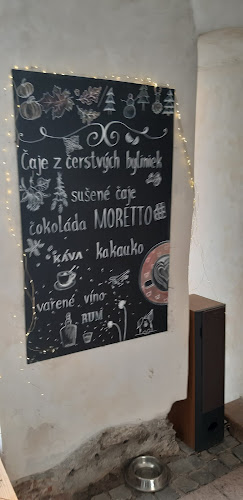 Čaje z čerstvých byliniek
sušené čaje
čokoláda MORETTO
KÁVA kakauko
varené víno
RUM